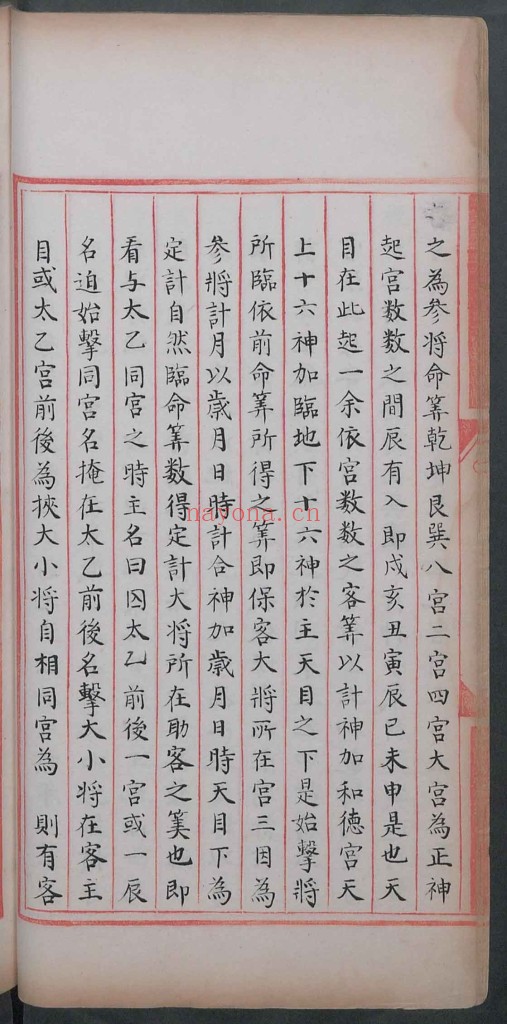 之為參将命筭乾坤艮巽八宫二宫四宫大宫為正神
起宫数数之間辰有入即戌亥丑寅辰巳未申是也天
目在此起一余依宫数数之客筭以計神加和德宫天
上十六神加臨地下十六神於主天目之下是始擊將
所臨依前命筭所得之筭即保客大将所在宫三因為
參将計月以歲月日時計合神加歲月日時天目下為
定計自然臨命筭数得定計大将所在助客之筭也即
看与太乙同宫之時主名曰囚太乙前後一宫或一辰
名迫始擊同宫名掩在太乙前後名擊大小将在客主
目或太乙宫前後為挾大小将自相同宫為　則有客
nayona.cn